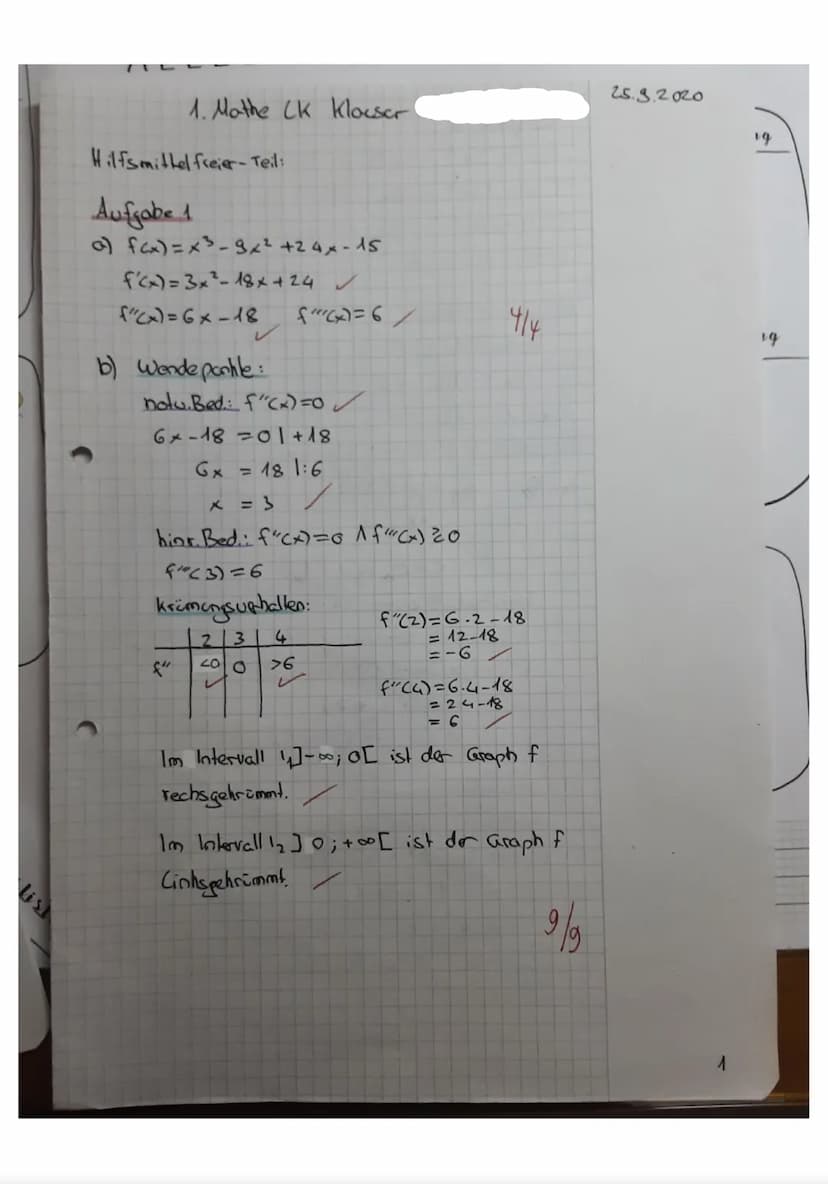 1. Mathe LK Klausur
25.9.2020
Hilfsmittelfreier-Teil:
Aufgabe 1
a) f(x)=x³-9x²+24x-15
f'(x)=3x²-18x+24 ✓
f''(x)=6x-18 ✓ f'''(x)=6 ✓
4/4
b) Wendepunkte:
notw.Bed.: f''(x)=0 ✓
6x-18 =0 |+18
6x = 18 |:6
x = 3 ✓
hinr.Bed.: f''(x)=0 ∧ f'''(x)≷0
f'''(3)=6
Krümungsverhalten:
2 | 3 | 4
f'' | <0 ✓ | 0 | >6 ✓
f''(2)=6·2-18
=12-18
=-6 ✓
f''(4)=6·4-18
=24-18
=6 ✓
Im Intervall I₁]-∞;0[ ist der Graph f
rechsgekrümmt. ✓
Im Intervall I₂ ]0;+∞[ ist der Graph f
Linksgekrümmt. ✓
9/9
1